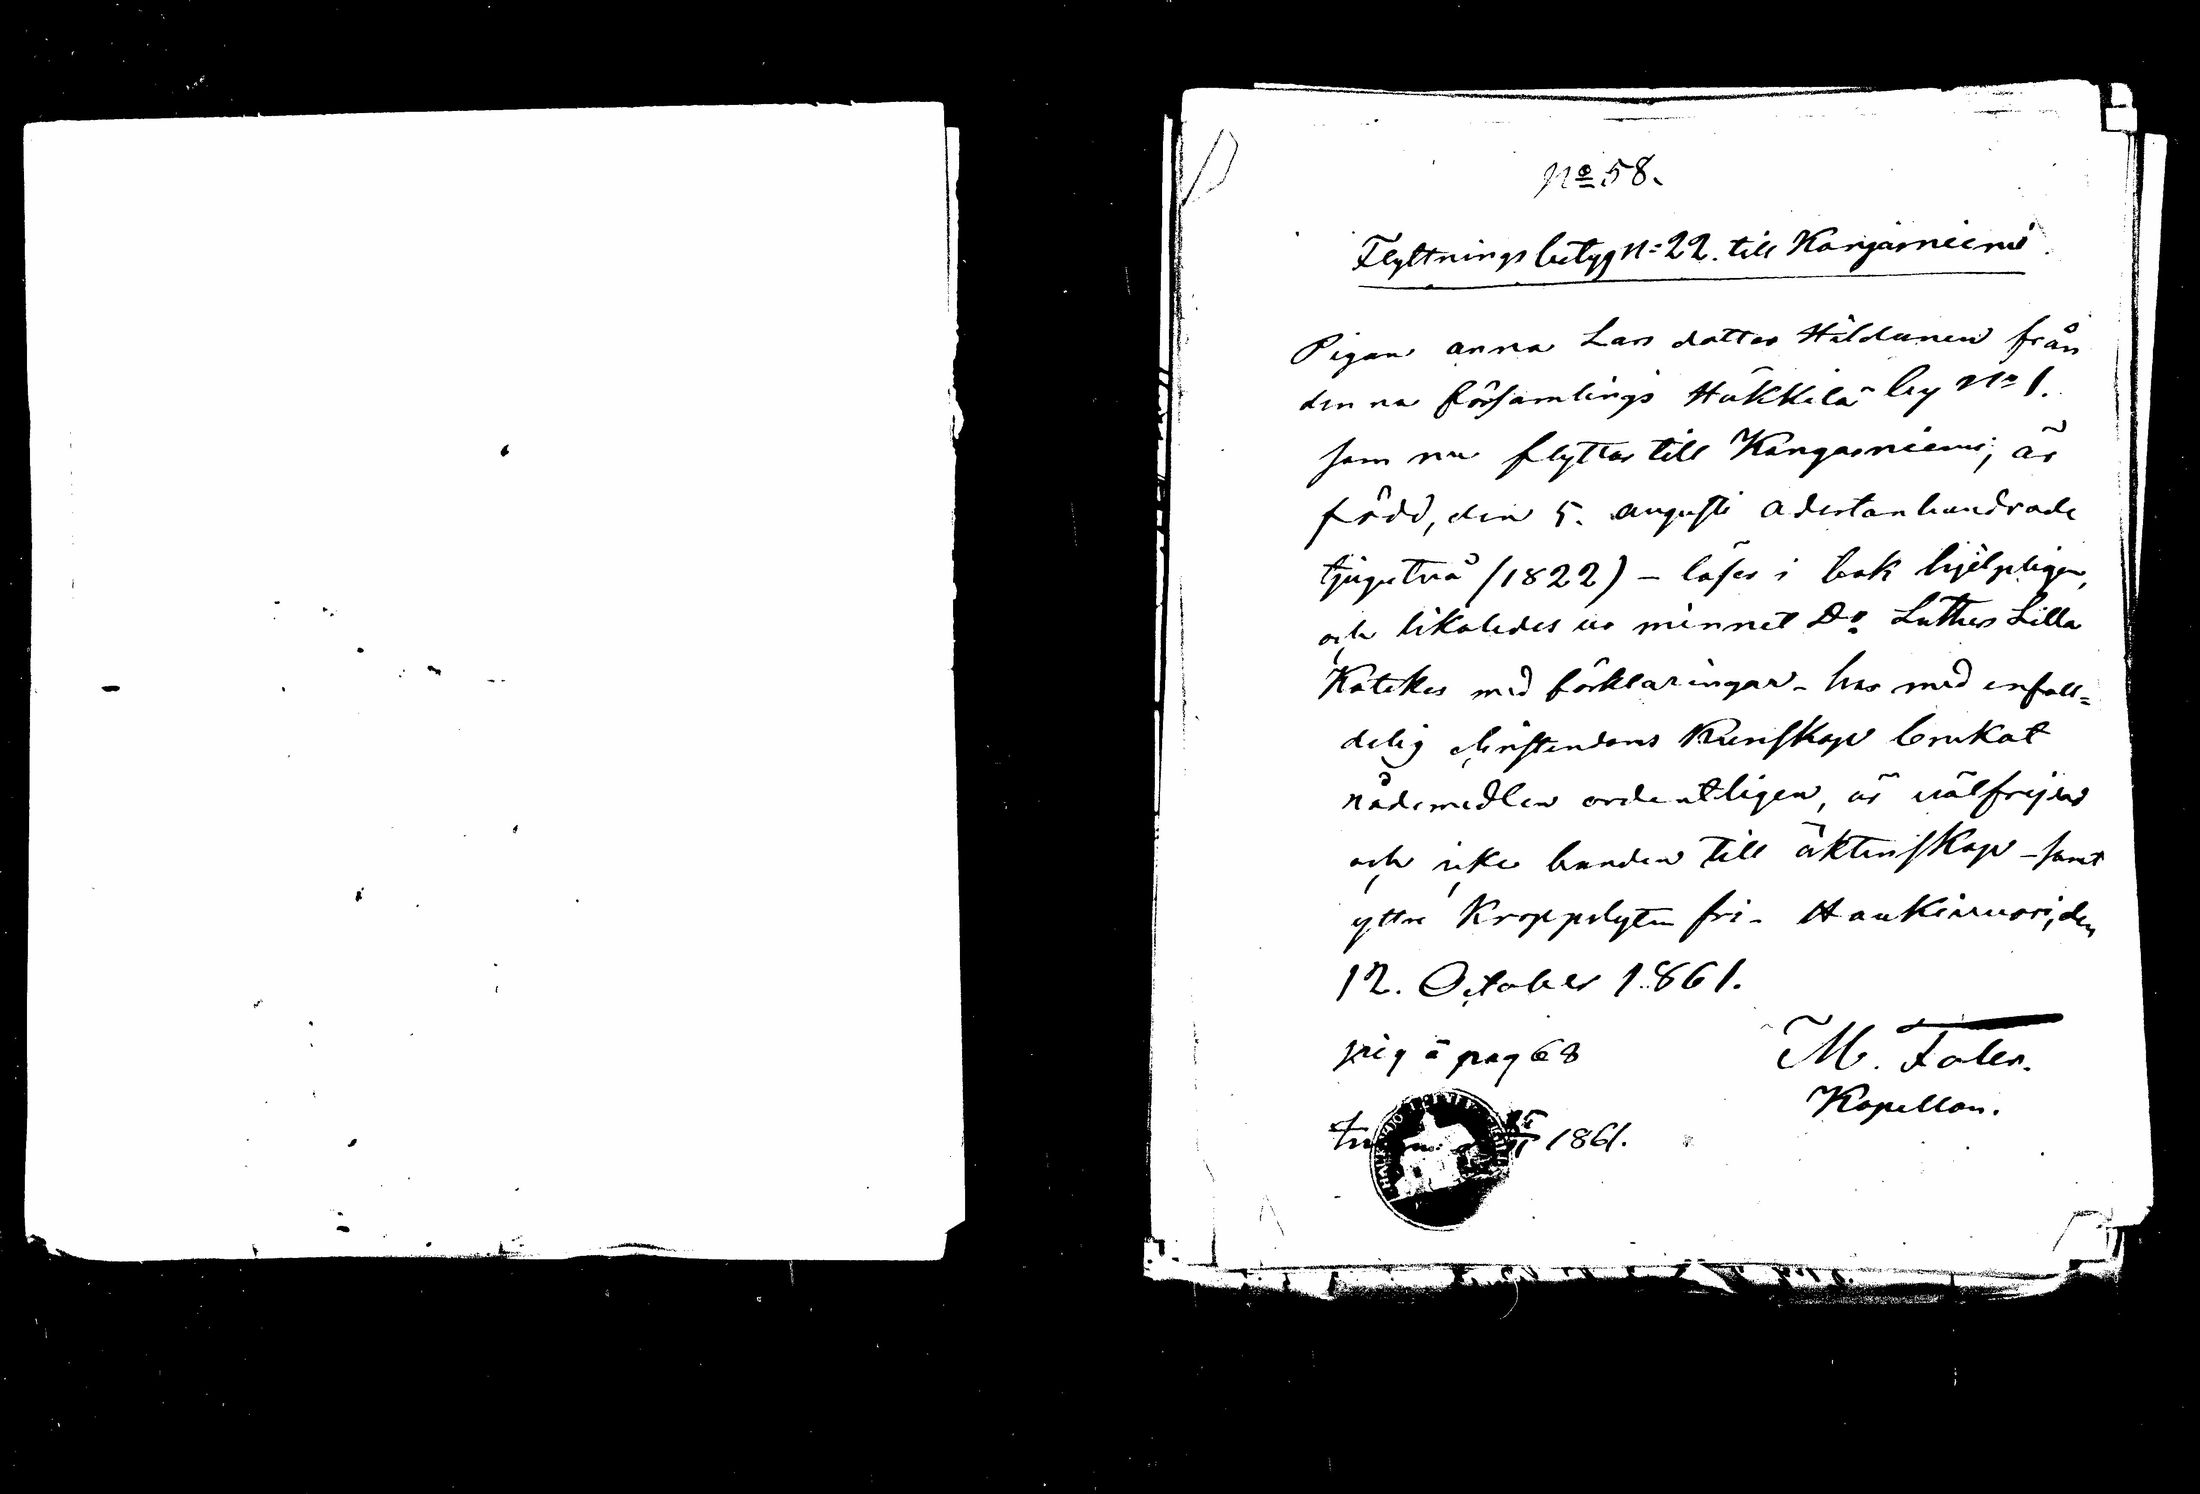 No 58.
Flyttningsbetyg N=22. till Kangasniemi
Pigan Anna Lars dotter Hildunen från
denna församlings Häkkilä by No 1.
som nu flyttar till Kangasniemi, är
född, den 5. augusti adertonhundrade
tjugutvå (1822) – läser i bok hjelpligen,
och likaledes ur minnet Do Luthers Lilla
Katekes med förklaringar – har med enfall=
delig christendoms Kunskap brukat
nådemedlen ordentligen, är välfrejdad
och icke bunden till äktenskap – samt
yttre Kroppslyten fri – Haukivuori, den
12. October 1861.
pag 68
M. Faler.
Kapellan.
1861.